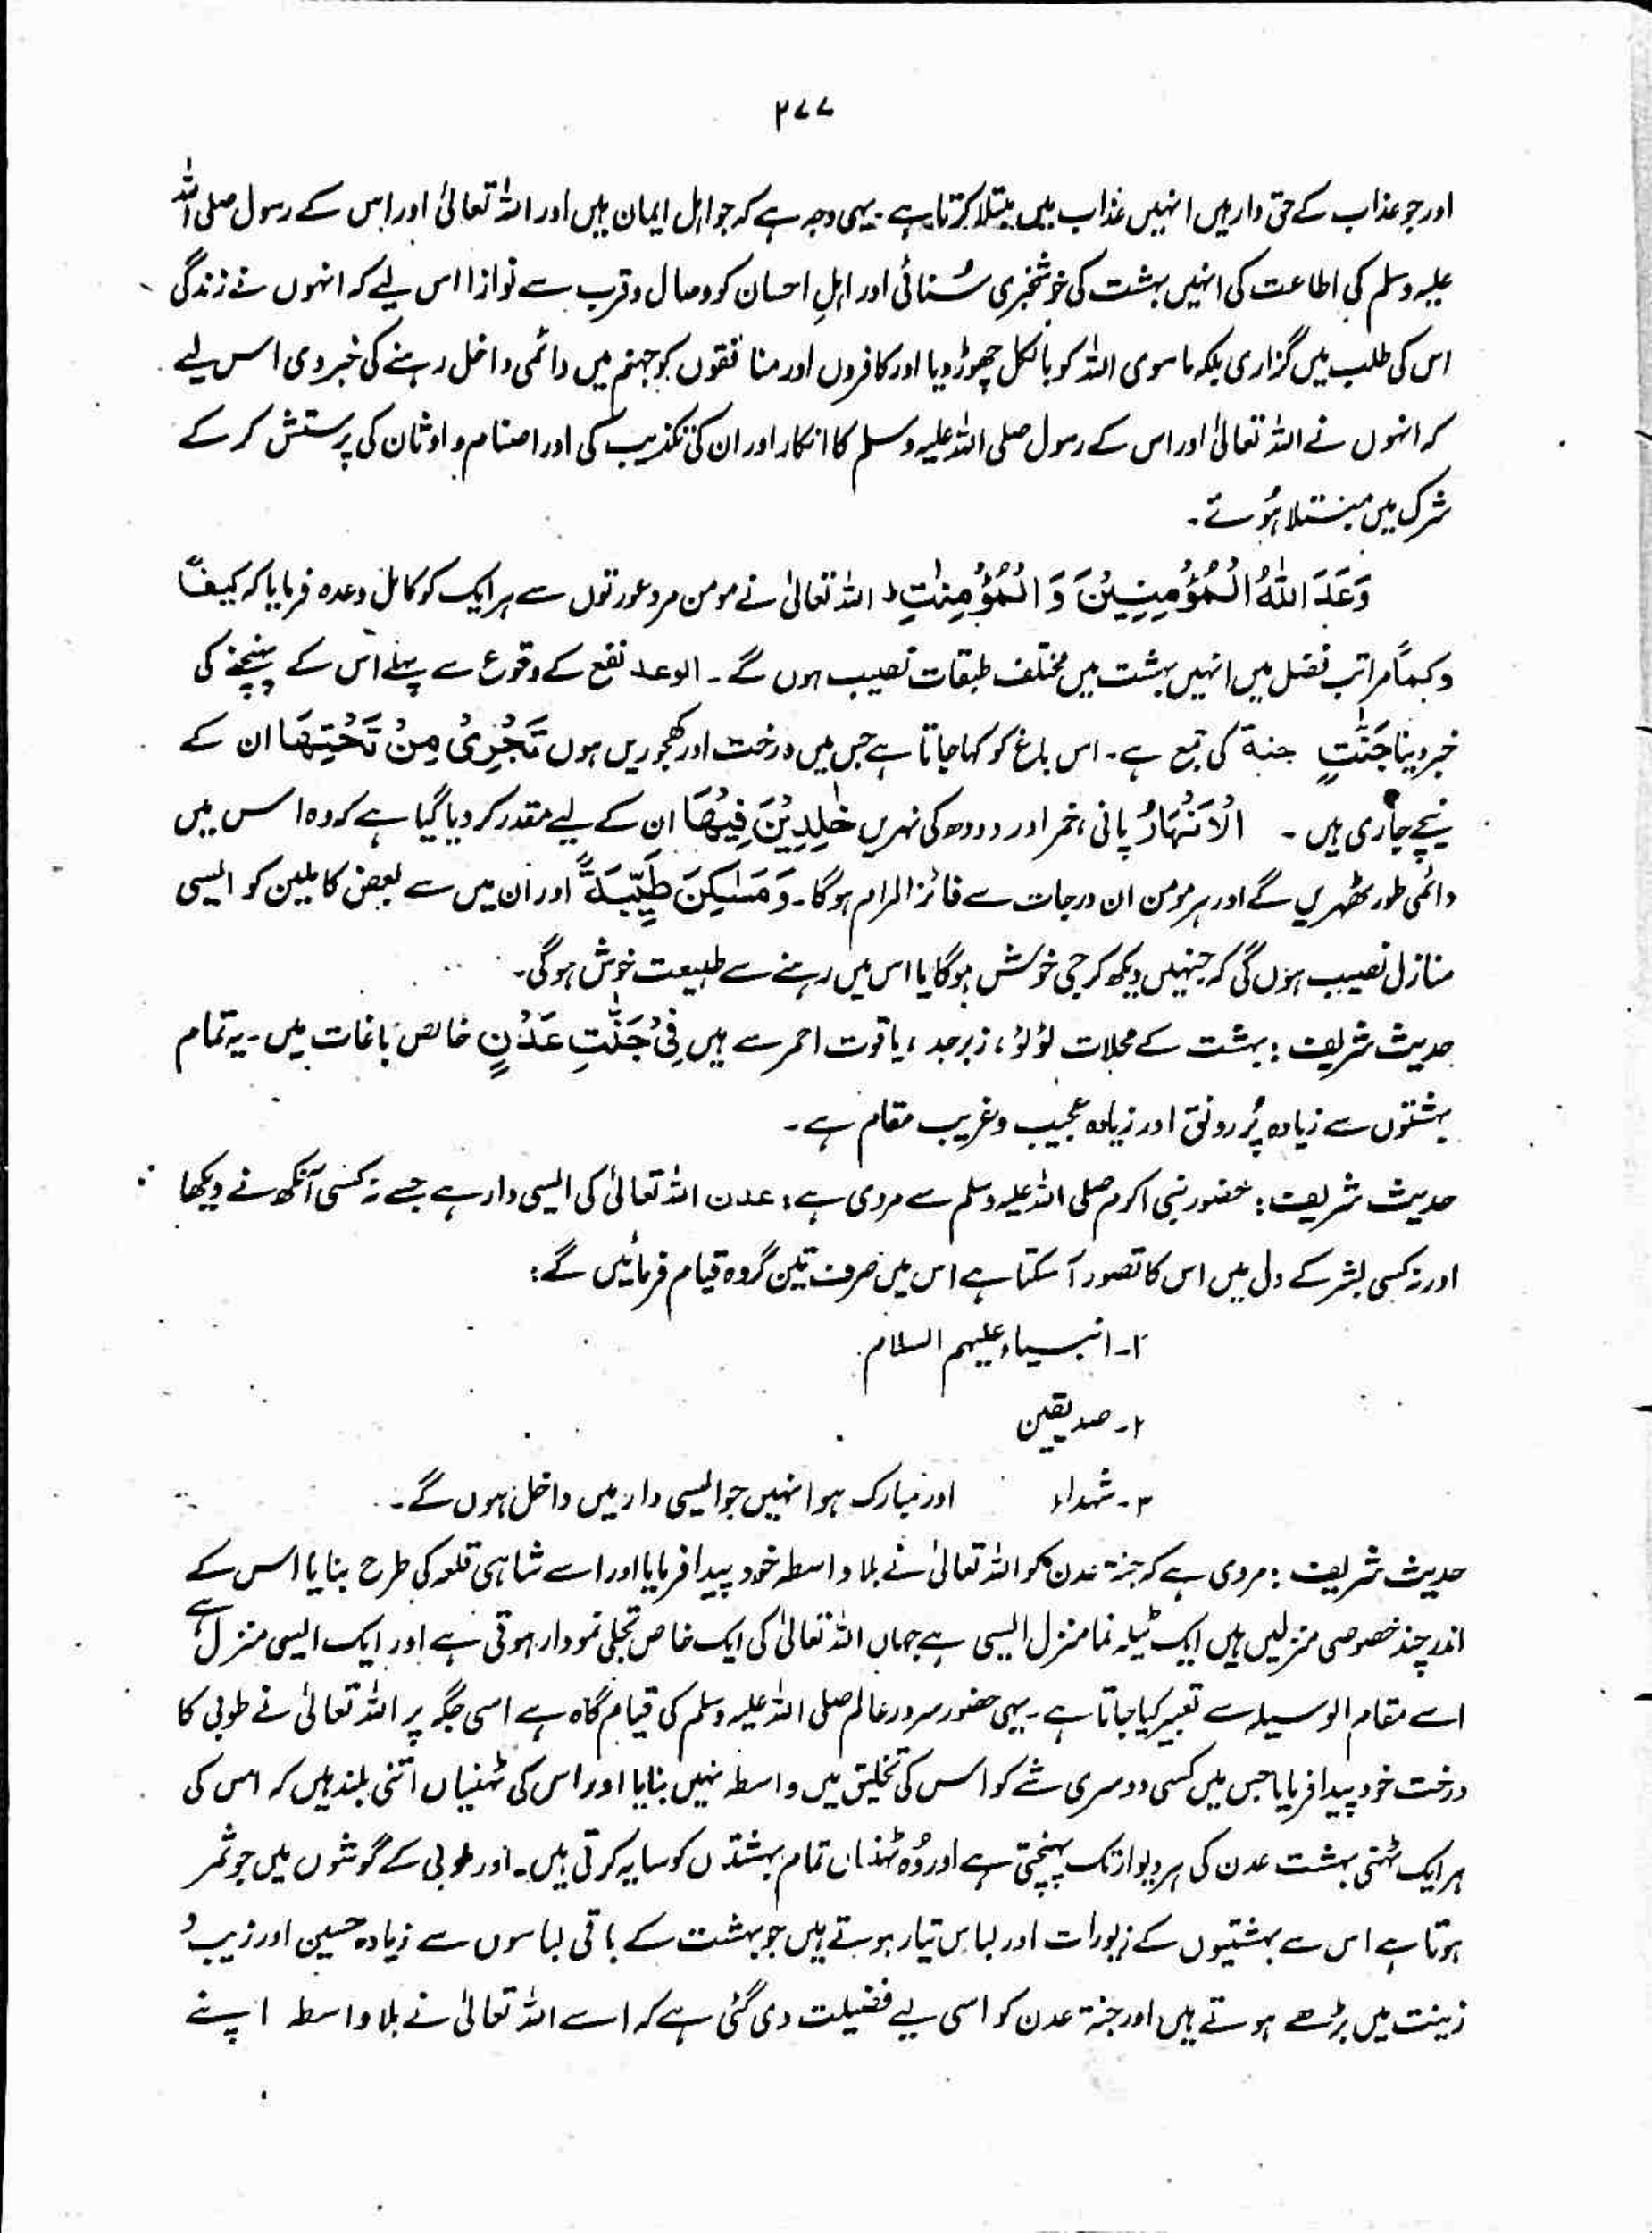 ۲۷۷
اور جو عذاب کے حق دار ہیں انہیں عذاب میں مبتلا کرتا ہے۔ یہی وجہ ہے کہ جو اہل ایمان ہیں اور اللہ تعالیٰ اور اس کے رسول صلی اللہ
علیہ وسلم کی اطاعت کی انہیں بہشت کی خوشخبری سُنائی اور اہلِ احسان کو وصال و قرب سے نوازا اس لیے کہ انہوں نے زندگی
اس کی طلب میں گزاری بلکہ ماسوی اللہ کو بالکل چھوڑ دیا اور کافروں اور منافقوں کو جہنم میں دائمی داخل رہنے کی خبر دی اس لیے
کہ انہوں نے اللہ تعالیٰ اور اس کے رسول صلی اللہ علیہ وسلم کا انکار اور ان کی تکذیب کی اور اصنام و اوثان کی پرستش کر کے
شرک میں مبتلا ہُوئے۔
وَعَدَ اللّٰہُ الْمُؤْمِنِیْنَ وَ الْمُؤْمِنٰتِ اللہ تعالیٰ نے مومن مرد عورتوں سے ہر ایک کو کامل وعدہ فرمایا کہ کیفاً
و کمّاً مراتب فضل میں انہیں بہشت میں مختلف طبقات نصیب ہوں گے۔ الوعد نفع کے وقوع سے پہلے اس کے پہنچنے کی
خبر دینا جَنّٰتٍ جنۃ کی جمع ہے۔ اس باغ کو کہا جاتا ہے جس میں درخت اور کھجوریں ہوں تَجْرِیْ مِنْ تَحْتِہَا ان کے
نیچے جاری ہیں۔ الْاَنْہَارُ پانی، خمر اور دودھ کی نہریں خٰلِدِیْنَ فِیْہَا ان کے لیے مقدر کر دیا گیا ہے کہ وہ اس میں
دائمی طور ٹھہریں گے اور ہر مومن ان درجات سے فائز المرام ہوگا۔ وَمَسٰکِنَ طَیِّبَۃً اور ان میں سے بعض کاملین کو ایسی
منازل نصیب ہوں گی کہ جنہیں دیکھ کر جی خوش ہوگا یا اس میں رہنے سے طبیعت خوش ہوگی۔
حدیث شریف: بہشت کے محلات لؤلؤ، زبرجد، یاقوت احمر سے ہیں فِیْ جَنّٰتِ عَدْنٍ خالص باغات میں۔ یہ تمام
بہشتوں سے زیادہ پُر رونق اور زیادہ عجیب و غریب مقام ہے۔
حدیث شریف: حضور نبی اکرم صلی اللہ علیہ وسلم سے مروی ہے: عدن اللہ تعالیٰ کی ایسی دار ہے جسے نہ کسی آنکھ نے دیکھا
اور نہ کسی بشر کے دل میں اس کا تصور آ سکتا ہے اس میں صرف تین گروہ قیام فرمائیں گے:
۱۔ انبیاء علیہم السلام
۲۔ صدیقین
۳۔ شہداء اور مبارک ہو انہیں جو ایسی دار میں داخل ہوں گے۔
حدیث شریف: مروی ہے کہ جنۃ عدن کو اللہ تعالیٰ نے بلا واسطہ خود پیدا فرمایا اور اسے شاہی قلعہ کی طرح بنایا اس کے
اندر چند خصوصی منزلیں ہیں ایک ٹیلہ نما منزل ایسی ہے جہاں اللہ تعالیٰ کی ایک خاص تجلی نمودار ہوتی ہے اور ایک ایسی منزل ہے
اسے مقام الوسیلہ سے تعبیر کیا جاتا ہے۔ یہی حضور سرور عالم صلی اللہ علیہ وسلم کی قیام گاہ ہے اسی جگہ پر اللہ تعالیٰ نے طوبیٰ کا
درخت خود پیدا فرمایا جس میں کسی دوسری شے کو اس کی تخلیق میں واسطہ نہیں بنایا اور اس کی ٹہنیاں اتنی بلند ہیں کہ اس کی
ہر ایک ٹہنی بہشت عدن کی ہر دیوار تک پہنچتی ہے اور وُہ ٹہنیاں تمام بہشتوں کو سایہ کرتی ہیں۔ اور طوبیٰ کے گوشوں میں جو ثمر
ہوتا ہے اس سے بہشتیوں کے زیورات اور لباس تیار ہوتے ہیں جو بہشت کے باقی لباسوں سے زیادہ حسین اور زیب و
زینت میں بڑھے ہوتے ہیں اور جنۃ عدن کو اسی لیے فضیلت دی گئی ہے کہ اسے اللہ تعالیٰ نے بلا واسطہ اپنے